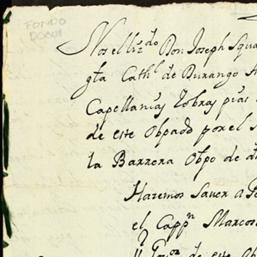 FONDO
Nos el Liz.do Don Joseph Squa
gta Cath.l de Durango
Capellanias y obras pias
de este Obpado por el S
la Barrera Obpo de d
Hazemos Saver a
el Capp.n Marcos
de este Ob